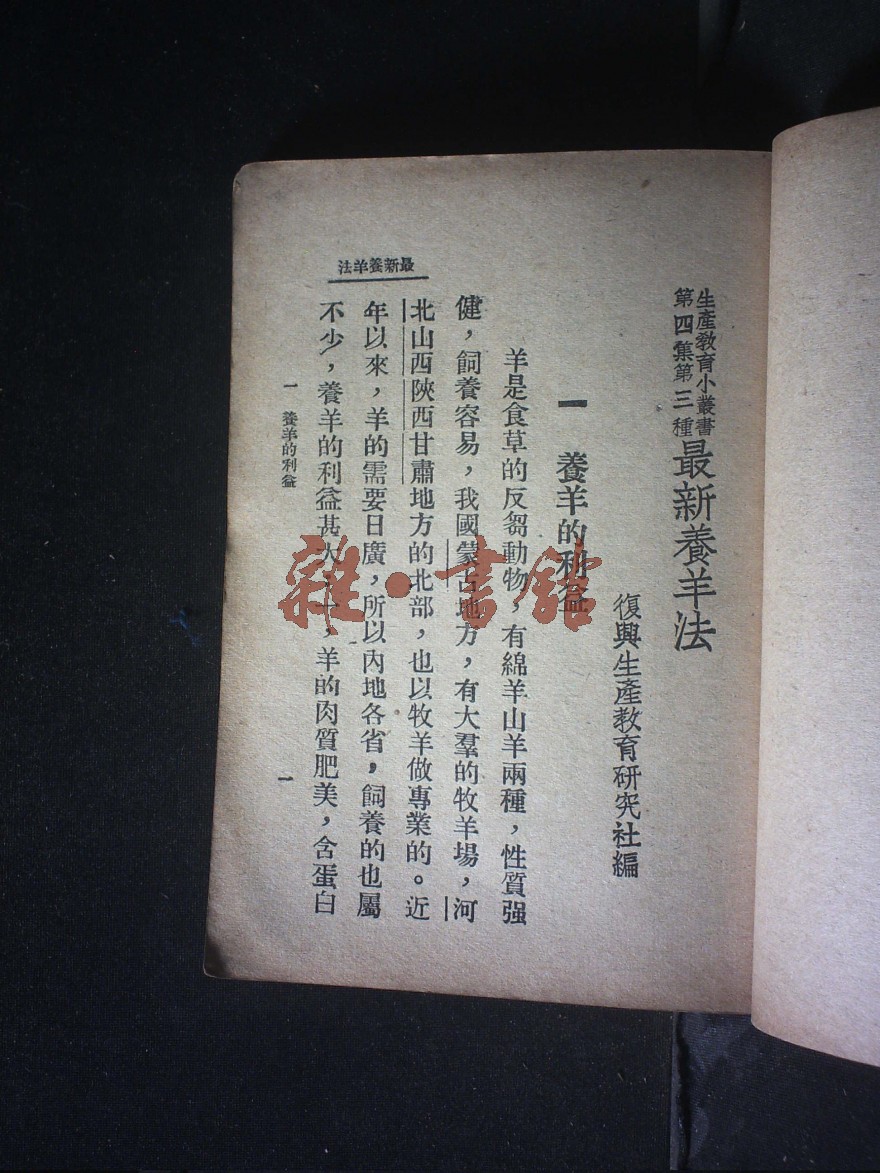 生產教育小叢書
第四集第三種
最新養羊法
復興生產教育研究社編
一　養羊的利益
羊是食草的反芻動物，有綿羊山羊兩種，性質强
健，飼養容易，我國蒙古地方，有大羣的牧羊場，河
北山西陝西甘肅地方的北部，也以牧羊做專業的。近
年以來，羊的需要日廣，所以內地各省，飼養的也屬
不少，養羊的利益甚大，羊的肉質肥美，含蛋白
最新養羊法
一　養羊的利益
一
雜·書館